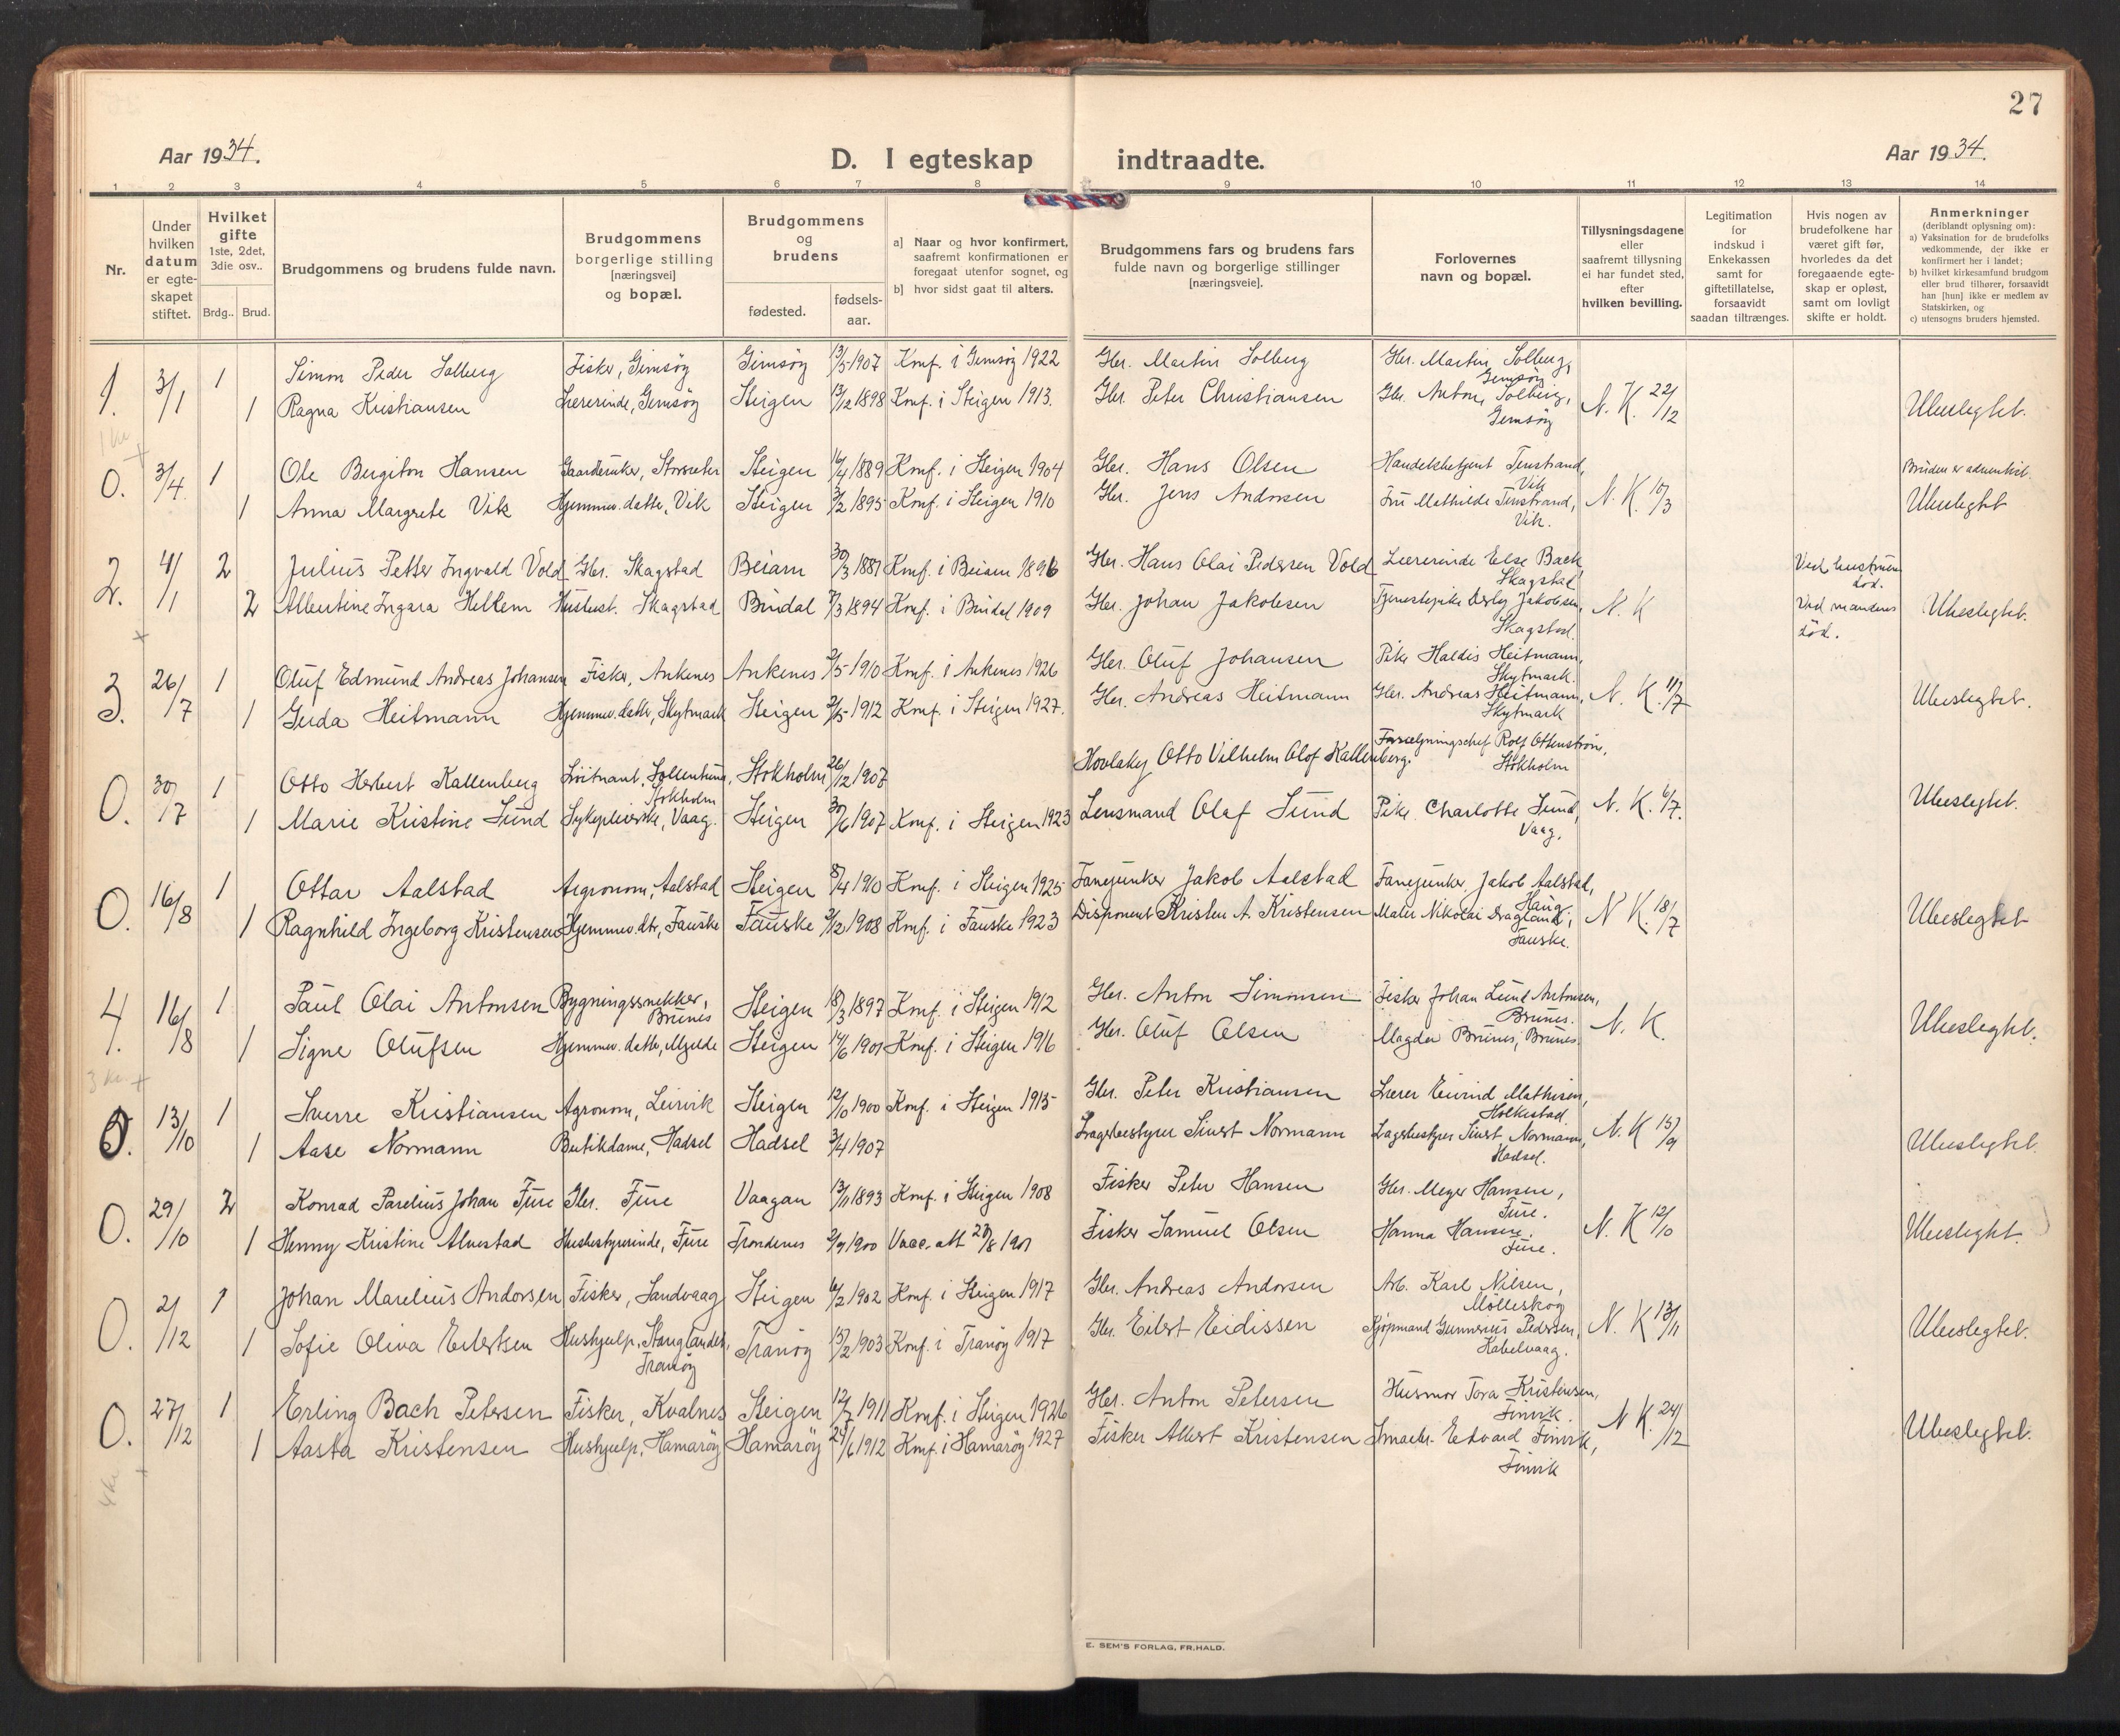 27
Aar 1934.
D. I egteskap indtraadte.
Aar 1934.
1 2 3 4 5 6 7 8 9 10 11 12 13 14
Nr.
Under hvilken datum er egte-skapet stiftet.
Hvilket gifte 1ste, 2det, 3die osv..
Brdg.. Brud.
Brudgommens og brudens fulde navn.
Brudgommens borgerlige stilling [næringsvei] og bopæl.
Brudgommens og brudens
fødested.
fødsels-aar.
a] Naar og hvor konfirmert, saafremt konfirmationen er foregaat utenfor sognet, og
b] hvor sidst gaat til alters.
Brudgommens fars og brudens fars fulde navn og borgerlige stillinger [næringsveie].
Forlovernes navn og bopæl.
Tillysningsdagene eller saafremt tillysning ei har fundet sted, efter hvilken bevilling.
Legitimation for indskud i Enkekassen samt for giftetillatelse, forsaavidt saadan tiltrænges.
Hvis nogen av brudefolkene har været gift før, hvorledes da det foregaaende egte-skap er opløst, samt om lovligt skifte er holdt.
Anmerkninger (deriblandt oplysning om):
a) Vaksination for de brudefolks vedkommende, der ikke er konfirmert her i landet;
b) hvilket kirkesamfund brudgom eller brud tilhører, forsaavidt han [hun] ikke er medlem av Statskirken, og
c) utensogns bruders hjemsted.
1. 3/1 1 Simon Peder Solberg Fisker, Gimsöy Gimsöy 13/5 1907 Konf. i Gimsöy 1922 Gbr. Martin Solberg Gbr. Martin Solberg, Gimsöy
1 Ragna Kristiansen Lærerinde, Gimsöy Steigen 13/12 1898 Konf. i Steigen 1913. Gbr. Peter Christiansen Gbr. Anton Solberg, Gimsöy N. K. 22/12 Ubeslegtet.
0. 3/4 1 Ole Bergiton Hansen Gaardbruker, Storsæter Steigen 16/4 1889 Konf. i Steigen 1904 Gbr. Hans Olsen Handelsbetjent Tenstrand, Vik Bruden er adventist.
1 Anna Margrete Vik Hjemmev. datter, Vik Steigen 3/2 1895 Konf. i Steigen 1910 Gbr. Jens Andorsen Fru Mathilde Tenstrand, Vik. N. K. 15/3 Ubeslegtet
2. 4/1 2 Julius Petter Ingvald Vold Gbr. Skagstad Beiarn 30/3 1881 Konf. i Beiarn 1896 Gbr. Hans Olai Pedersen Vold Lærerinde Else Back Skagstad Ved hustruens död.
2 Albertine Ingara Hellem Husbest. Skagstad Bindal 3 1894 Konf. i Bindal 1909 Gbr. Johan Jakobsen Tjenestepike Jakobsen, Skagstad. N. K Ved mandens död. Ubeslegtet.
3. 26/7 1 Oluf Edmund Andreas Johansen Fisker, Ankenes Ankenes 2/5 1910 Konf. i Ankenes 1926 Gbr. Oluf Johansen Pike Haldis Heitmann, Skytmark.
1 Gerda Heitmann Hjemmev. datter, Skytmark Steigen 2/5 1912 Konf. i Steigen 1927. Gbr. Andreas Heitmann Gbr. Andreas Heitmann, Skytmark N. K. 11/7 Ubeslegtet.
0. 30/7 1 Otto Herbert Kallenberg Löitnant, Sollentuna, Stokholm Stokholm 26/12 1907 Hovlakej Otto Vilhelm Olof Kallenberg. Forsæljningschef Rolf Ottenström, Stokholm
1 Marie Kristine Sund Sykepleierske, Vaag. Steigen 30/6 1907 Konf. i Steigen 1923 Lensmand Olaf Sund Pike Charlotte Sund, Vaag. N. K. 6/7. Ubeslegtet.
0. 16/8 1 Ottar Aalstad Argronom, Aalstad Steigen 8/4 1910 Konf. i Steigen 1925 Fanejunker Jakob Aalstad Fanejunker Jakob Aalstad, Haug
1 Ragnhild Ingeborg Kristensen Hjemmev. dtr, Fauske Fauske 2/12 1908 Konf. i Fauske 1923 Disponent Kristen A. Kristensen Maler Nikolai Dragland, Fauske. N K. 18/7 Ubeslegtet
4. 16/8 1 Paul Olai Antonsen Bygningssnekker, Brunes Steigen 18/3 1897 Konf. i Steigen 1912 Gbr. Anton Simonsen Fisker Johan Lund Antonsen, Brunes.
1 Signe Olufsen Hjemmev. datter, Mjelde Steigen 14/6 1901 Konf. i Steigen 1916 Gbr. Oluf Olsen Magda Brunes, Brunes. N. K. Ubeslegtet.
3 kr. +
0. 13/10 1 Sverre Kristiansen Agronom, Leirvik Steigen 12/10 1900 Konf. i Steigen 1915 Gbr. Peter Kristiansen Lærer Eivind Mathisen, Holkestad
1 Aase Normann Butikdame, Hadsel Hadsel 3/4 1907 Lagerbestyrer Sivert Normann Lagerbestyrer Sivert Normann, Hadsel. N. K 15/9 Ubeslegtet.
0. 29/10 2 Konrad Parelius Johan Fure Gbr. Fure Vaagan 13/11 1893 Konf. i Steigen 1908 Fisker Peter Hansen Gbr. Meyer Hansen, Fure.
1 Henny Kristine Alvestad Husbestyrerinde, Fure Trondenes 2/9 1900 Vacc. att 28/8 1901 Fisker Samuel Olsen Hanna Hansen, Fure. N. K 12/10 Ubeslegtet.
0. 2/12 1 Johan Marelius Andorsen Fisker, Sandvaag Steigen 6/2 1902 Konf. i Steigen 1917 Gbr. Andreas Andorsen Arb. Karl Nilsen, Molleskog
1 Sofie Oliva Eilertsen Hushjælp, Stanglandet, Tranöy Tranöy 15/2 1903 Konf. i Tranöy 1917 Gbr. Eilert Eidissen Kjøpmand Gunnerius Pedersen, Kabelvaag. N. K 13/11 Ubeslegtet.
0. 27/12 1 Erling Bach Petersen Fisker, Kvalnes Steigen 12/7 1911 Konf. i Steigen 1926 Gbr. Anton Petersen Husmor Tora Kristensen, Finvik.
1 Aasta Kristensen Hushjælp, Hamaröy Hamaröy 29/6 1912 Konf. i Hamaröy 1927 Fisker Albert Kristensen Smaabr. Edvard Finvik, Finvik N K. 24/12 Ubeslegtet.
4 kr
E. SEM'S FORLAG, FR.HALD.